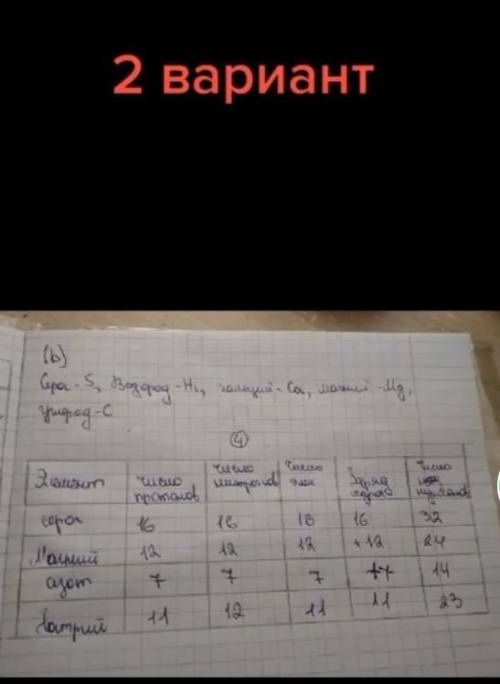 2 вариант
(b)
Сера-S, Водород-H₂, кальций-Ca, магний-Mg,
углерод-C
④
Элемент Число протонов Число нейтронов Число элек Заряд ядра Число нуклонов
сера 16 16 16 16 32
Магний 12 12 12 +12 24
азот 7 7 7 +7 14
Натрий 11 12 11 11 23